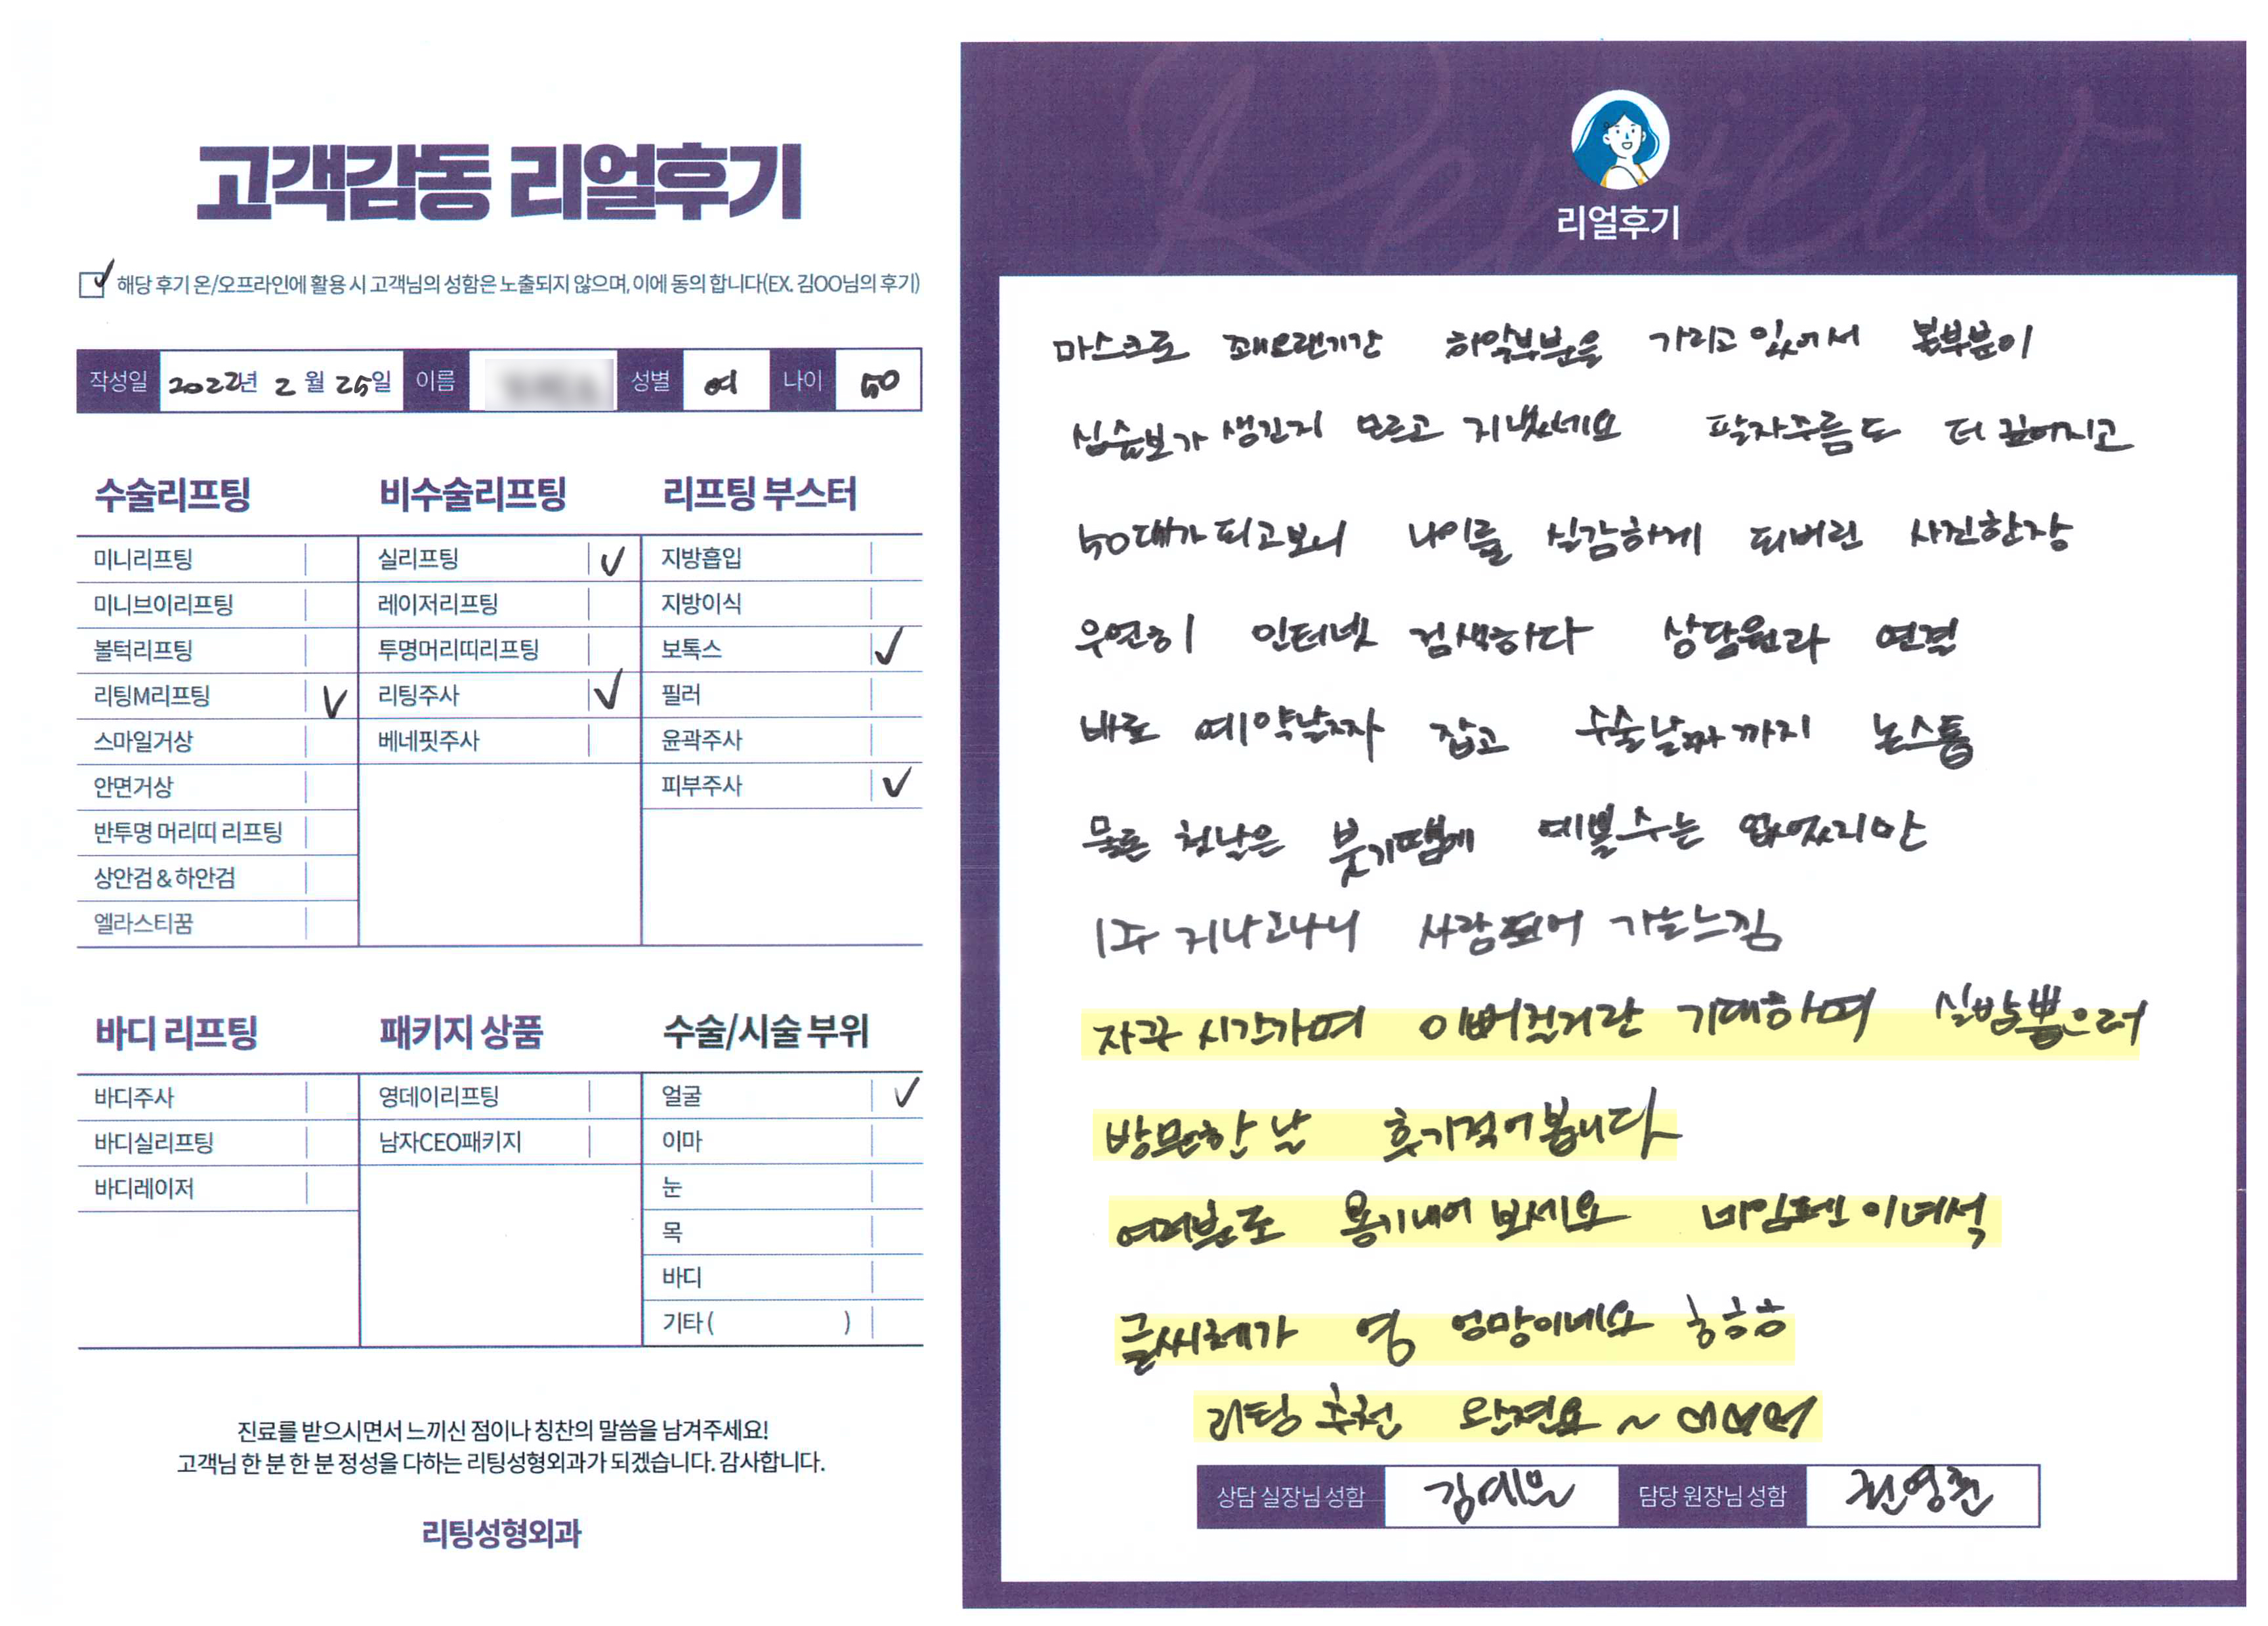 고객감동 리얼후기
해당 후기 온/오프라인에 활용 시 고객님의 성함은 노출되지 않으며, 이에 동의 합니다(EX. 김OO님의 후기)
작성일 2022년 2월 25일 이름 성별 여 나이 50
수술리프팅
미니리프팅
미니브이리프팅
볼턱리프팅
리팅M리프팅
스마일거상
안면거상
반투명 머리띠 리프팅
상안검 & 하안검
엘라스티꿈
비수술리프팅
실리프팅
레이저리프팅
투명머리띠리프팅
리팅주사
베네핏주사
리프팅 부스터
지방흡입
지방이식
보톡스
필러
윤곽주사
피부주사
바디 리프팅
바디주사
바디실리프팅
바디레이저
패키지 상품
영데이리프팅
남자CEO패키지
수술/시술 부위
얼굴
이마
눈
목
바디
기타 ( )
진료를 받으시면서 느끼신 점이나 칭찬의 말씀을 남겨주세요!
고객님 한 분 한 분 정성을 다하는 리팅성형외과가 되겠습니다. 감사합니다.
리팅성형외과
Review
리얼후기
마스크로 꽤오랜기간 하악부분을 가리고 있어서 볼부분이
심술보가 생긴지 모르고 지냈네요 팔자주름도 더 깊어지고
50대가 되고보니 나이를 실감하게 되버린 사진한장
우연히 인터넷 검색하다 상담원과 연결
바로 예약날짜 잡고 수술날짜까지 논스톱
물론 첫날은 붓기땜에 예쁠수는 없었지만
1주 지나고나니 사람되어 가는느낌
자꾸 시간가며 이뻐질거란 기대하며 실밥뽑으러
방문한 날 후기적어봅니다
여러분도 용기내어 보세요 네임펜 이녀석
글씨체가 영 엉망이네요 ㅎㅎㅎ
리팅 추천 완전요~
상담 실장님 성함 김예은 담당 원장님 성함